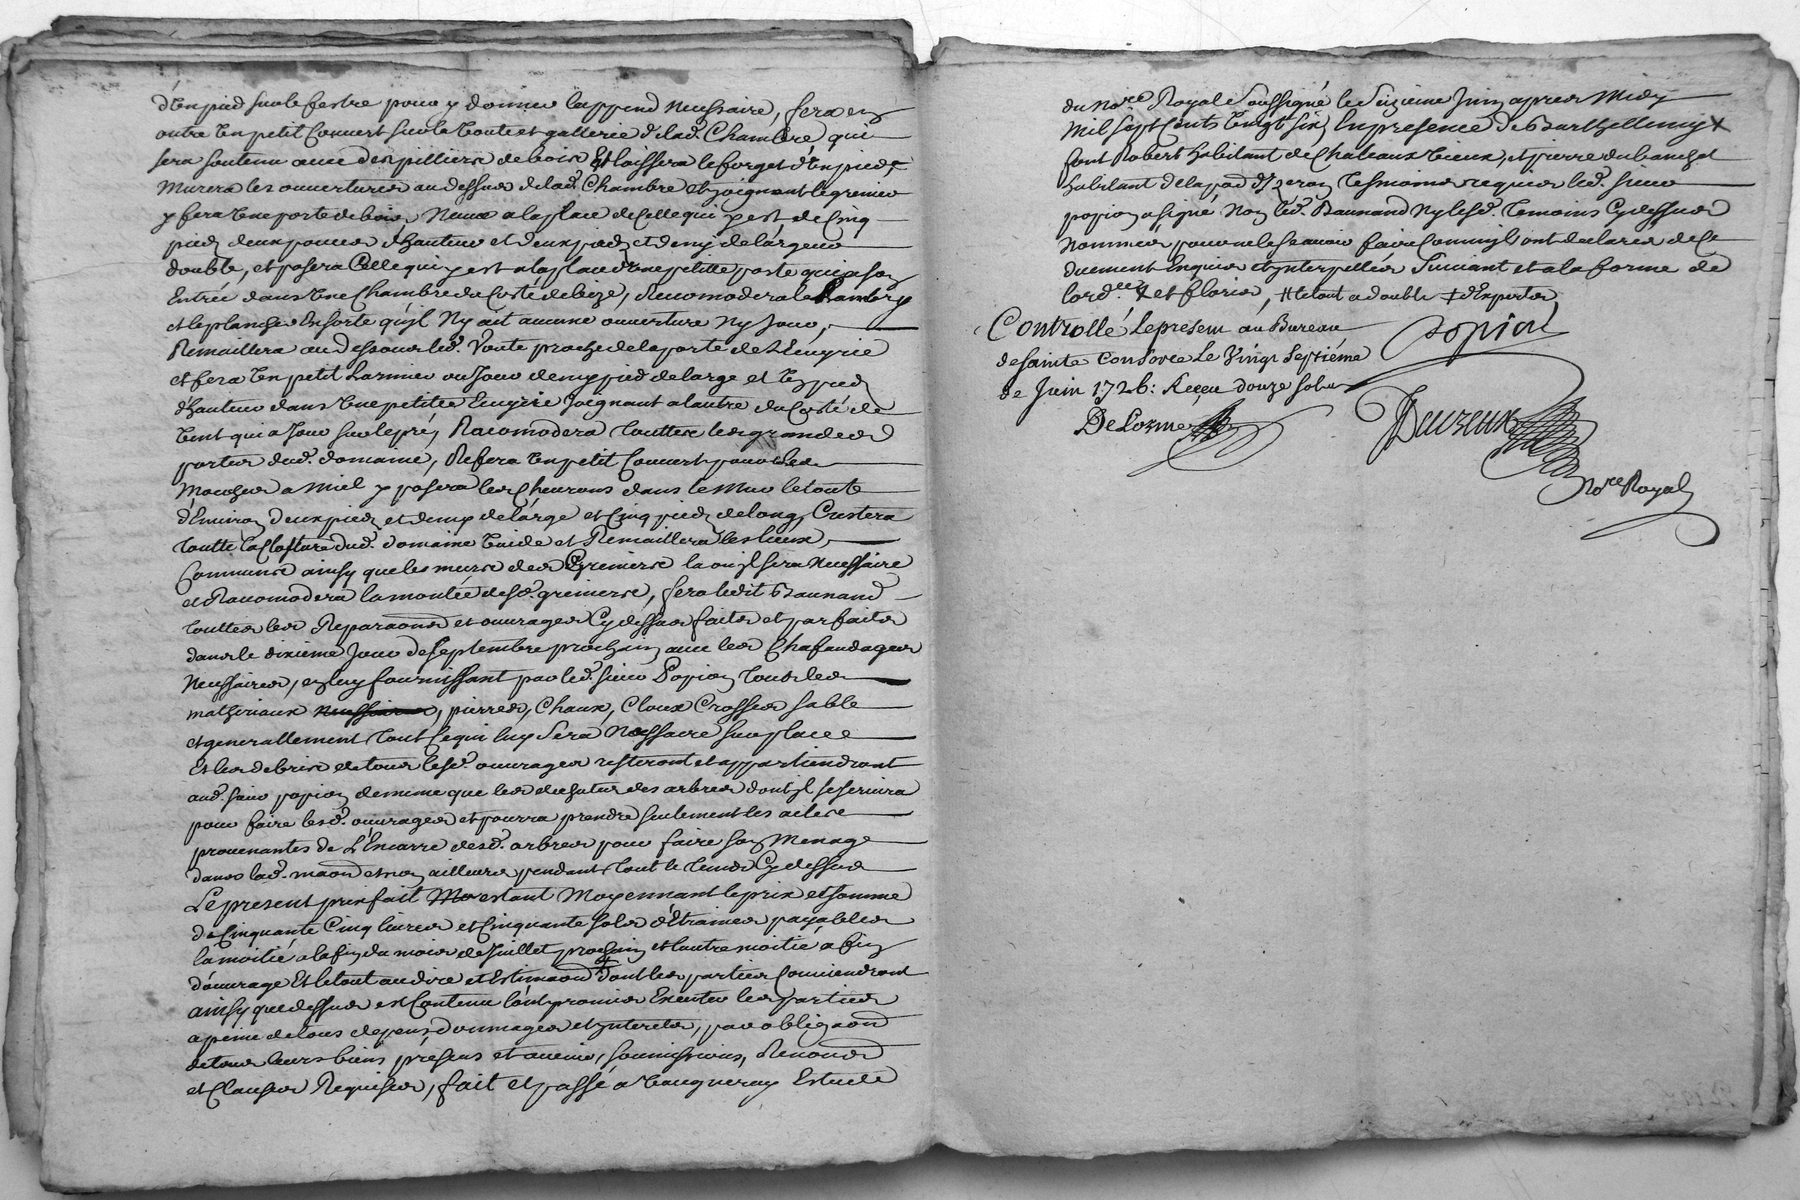 d'un pied sur le festre pour y donner le append necessaire, fera en
outre un petit Couvert sur la Voute et gallerie de lad. Chambre qui
sera soutenu avec des pilliers de bois Et laissera le forget d'un pied,
Murera les ouvertures au dessus de lad. Chambre et joignant le grenier
y fera une porte de bois Neuve a la place de Celle qui y est de Cinq
pieds deux pouces d'hauteur et deux pieds et demy de largeur
double, et posera Celle qui y est a la place d'une petitte porte qui a son
Entrée dans une Chambre du Costé de bize, Racomodera la Chambre
et le plancher En sorte qu'jl Ny ait aucune ouverture Ny Jour,
Remaillera au dessous lad. Voute proche de la porte de L'Ecuyrie
et fera un petit Larmier ou Jour demy pied de large et un pied
d'hauteur dans une petitte Ecuyrie Joignant a lautre du Costé de
vent qui a Jour sur le pré, Racomodera touttes les grandes
portes dud. domaine, Refera un petit Couvert pour les
Mouches a Miel y posera les Chevrons dans le Mur le tout
d'Environ deux pieds et demy de large et Cinq pieds de long, Crestera
toutte la Closture dud. domaine vuide et Remaillera les lieux
Communs ainsy que les murs des Greniers la ou jl sera Necessaire
et Racomodera la montée desd. greniers, fera ledit Baunand
touttes les Reparaons et ouvrages Cy dessus faites et parfaites
dans le dixieme Jour de septembre prochain avec les Chafaudages
Necessaires, en luy fournissant par led. sieur Popion tous les
matheriaux necessaires, pierres, Chaux, Cloux Crosses sable
et generallement tout Ce qui luy sera Necessaire sur place
Et les debris de tous lesd. ouvrages resteront et appartiendront
aud. sieur popion de meme que les des arbres dont jl se servira
pour faire lesd. ouvrages et pourra prendre seulement les
provenantes de L'Encarre desd. arbres pour faire son Menage
dans lad. maon et non ailleurs pendant tout le tems Cy dessus
Le present prixfait Mo estant Moyennant le prix et somme
de Cinquante Cinq livres et Cinquante sols d'Etraines payables
la moitié a la fin du mois de Juillet prochain et lautre moitié a fin
d'ouvrage Et le tout au dire et Estimaon ‡ dont les parties Conviendront
ainsy que dessus est Contenu l'ont promis Executer les parties
a peine de tous depens dommages et jnterets, par obligaon
de tous leurs biens présens et avenir, soumissions, Renons
et Clauses Requises, fait et passé a Vaugneray Estude
du No.re Royal soussigné le seizieme Juin apres Midy
Mil sept Cents vingt six En presence de Barthellemy X
font Robert habitant de Chateaux vieux, et pierre dubanchet
habitant de la par. d'Izeron tesmoins requis led. sieur
popion a signé Non led. Baunand Ny lesd. temoins Cy dessus
Nommés pour ne le scavoir faire Comm'jls ont declarés de Ce
duement Enquis et jnterpellés suivant et a la forme de
lord.ce X et floris, # le tout a double ‡ d'Experts
Controllé Le present au Bureau
de sainte Consorce Le vingt septiéme
de Juin 1726: Reçeu douze sols
DeLorme
Popion
Deureux
No.re Royal